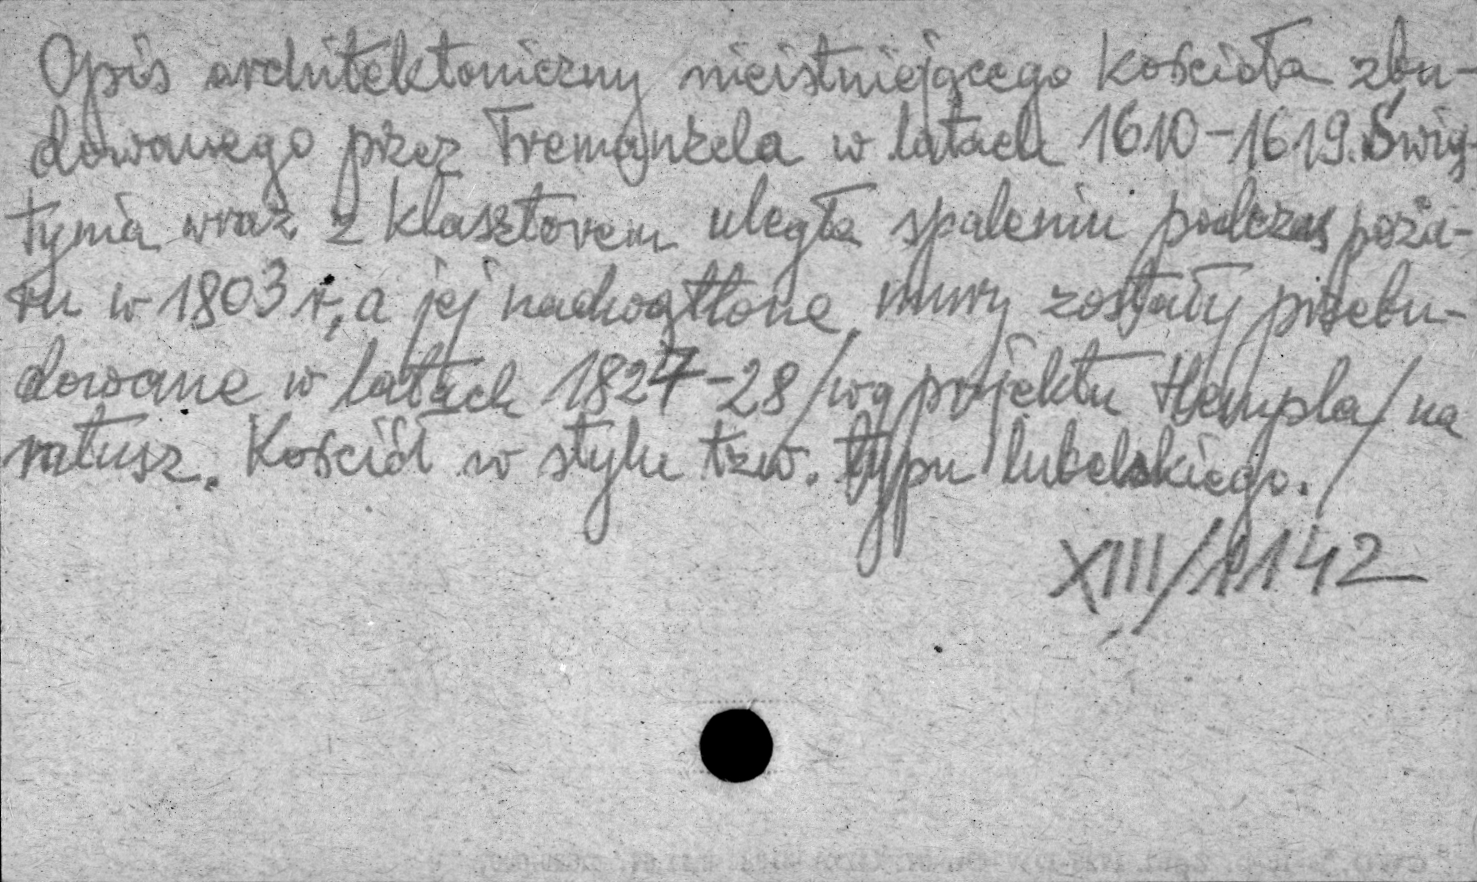 Opis architektoniczny nieistniejącego kościoła zbu-
dowanego przez Tremanzela w latach 1610-1619. Świą-
tynia wraz z klasztorem uległa spaleniu podczas poża-
ru w 1803 r., a jej nadwątlone mury zostały przebu-
dowane w latach 1827-28 /wg projektu Hempla/ na
ratusz. Kościół w stylu tzw. typu lubelskiego./
XIII/1142